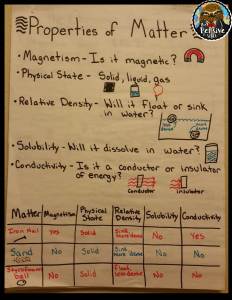 Properties of Matter
• Magnetism - Is it magnetic?
• Physical State - Solid, liquid, gas
• Relative Density - Will it float or sink
in water?
• Solubility - Will it dissolve in water?
• Conductivity - Is it a conductor or insulator
of energy?
conductor insulator
Matter Magnetism Physical State Relative Density Solubility Conductivity
Iron Nail Yes Solid Sink, more dense No Yes
Sand No Solid Sink, more dense No No
Styrofoam ball No Solid Float, less dense No No